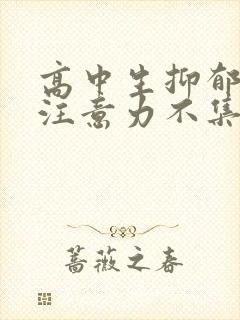 高中生抑郁
注意力不集
蔷薇之春